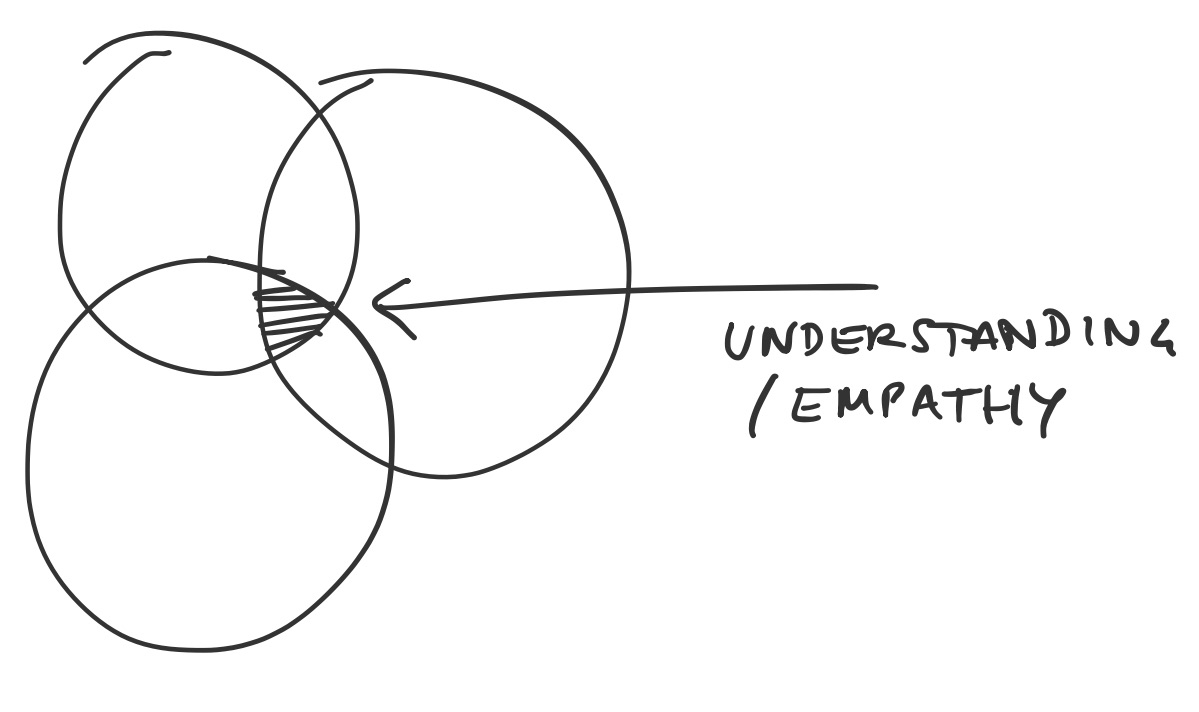 UNDERSTANDING
/EMPATHY